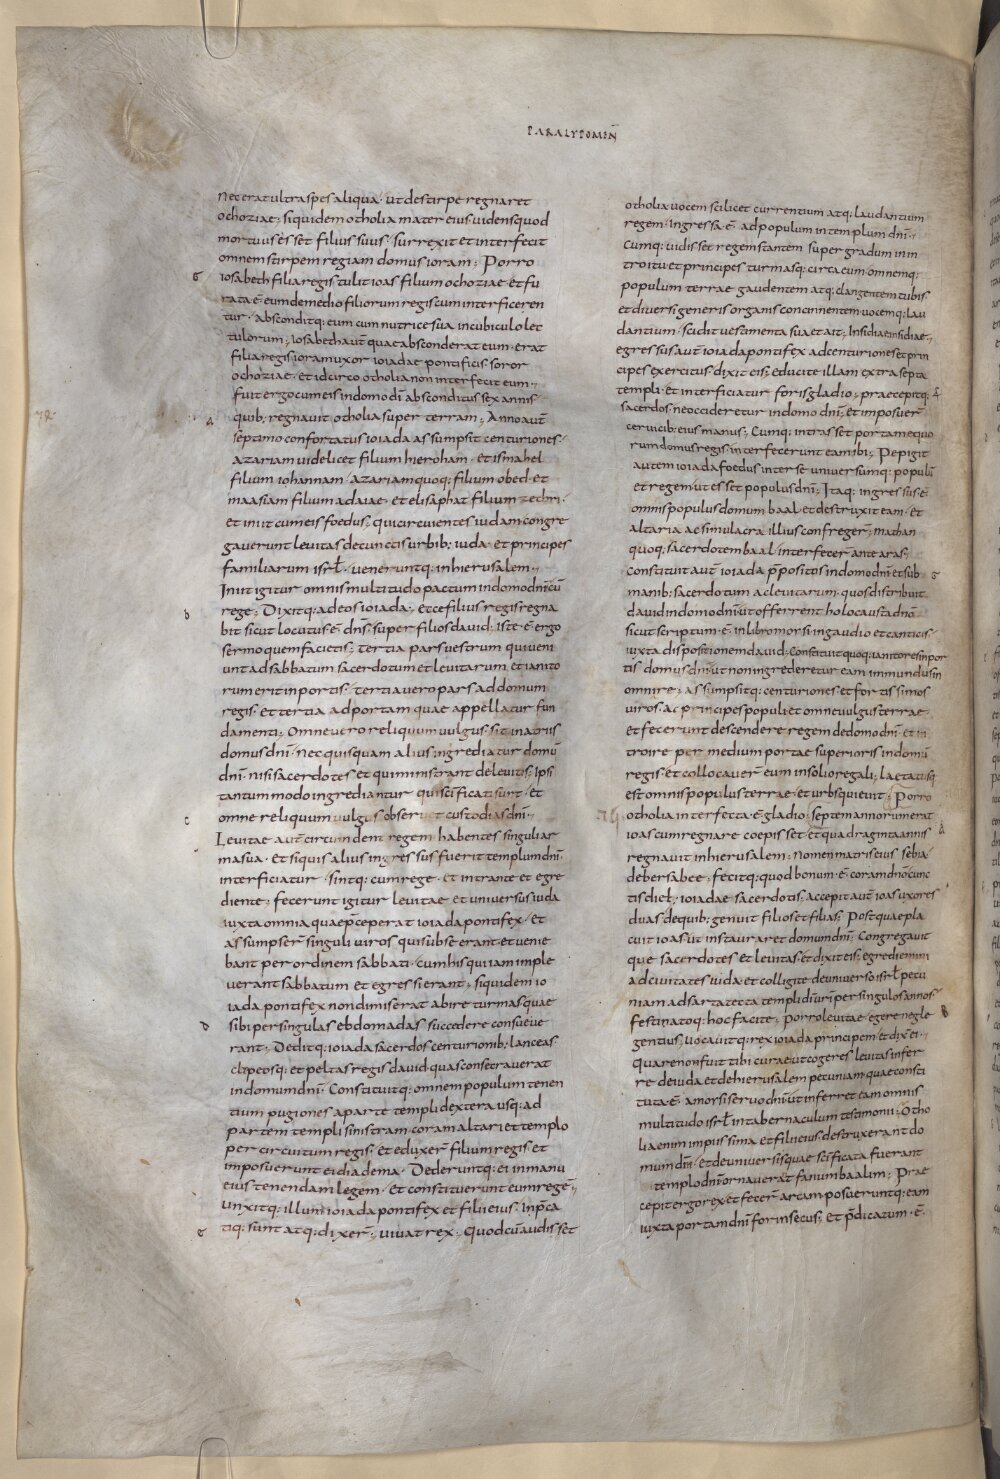 PARALYPOMEN̄
nec erat ultra spes aliqua · ut destirpe regnaret
ochoziae; siquidem otholia mater eius uidens quod
mortuus esset filius suus · surrexit et interfecit
omnem stirpem regiam domus ioram; Porro
iosabeth filia regis tulit ioas filium ochoziae · et fu
rata ē eum de medio filiorum regis cum interficeren
tur · absconditq; eum cum nutrice sua in cubiculo lec
tulorum; iosabeth aut̄ quae absconderat eum · erat
filia regis ioram uxor ioiadae pontificis · soror
ochoziae · et idcirco otholia non interfecit eum;
fuit ergo cum eis in domo dī absconditus sex annis
quib; regnauit otholia super terram; Anno aut̄
septimo confortatus ioiada assumpsit centuriones ·
azariam uidelicet filium hieroham · et ismahel
filium iohannam · azariam quoq; filium obed · et
maasiam filium adaiae · et elisaphat filium zechri ·
et iniit cum eis foedus; qui circuientes iudam congre
gauerunt leuitas de cunctis urbib; iuda · et principes
familiarum isrł · ueneruntq; in hierusalem;
Iniit igitur omnis multitudo pactum in domo dn̄i cū
rege; Dixitq; ad eos ioiada; ecce filius regis regna
bit sicut locutus ē dn̄s super filios dauid; iste ē ergo
sermo quem facietis; tertia pars uestrum qui ueni
unt ad sabbatum sacerdotum et leuitarum et ianito
rum erit in portis · tertia uero pars ad domum
regis · et tertia ad portam quae appellatur fun
damenti; Omne uero reliquum uulgus · sit in atriis
domus dn̄i · nec quisquam alius ingrediatur domū
dn̄i · nisi sacerdotes et qui ministrant de leuitis; ipsi
tantummodo ingrediantur quia sc̄ificati sunt · et
omne reliquum uulgus obseruet custodias dn̄i;
Leuitae aut̄ circundent regem habentes singuli ar
ma sua · et siquis alius ingressus fuerit templum dn̄i
interficiatur · sintq; cum rege · et intrante et egre
diente; fecerunt igitur leuitae et uniuersus iuda
iuxta omnia quae p̄ceperat ioiada pontifex · et
assumpser̄ singuli uiros qui sub se erant et uenie
bant per ordinem sabbati · cum his qui iam imple
uerant sabbatum et egressi erant; siquidem io
iada pontifex non dimiserat abire turmas quae
sibi per singulas ebdomadas succedere consueue
rant; Deditq; ioiada sacerdos centurionib; lanceas
clipeosq; et peltas regis dauid quas consecrauerat
in domum dn̄i · Constituitq; omnem populum tenen
tium pugiones a parte templi dextera usq; ad
partem templi sinistram · coram altari et templo
per circuitum regis · et eduxer̄ filium regis · et
imposuerunt ei diadema · Dederuntq; ei in manu
eius tenendam legem · et constituerunt eum regē;
Unxitq; illum ioiada pontifex et filii eius; inp̄ca
tiq; sunt atq; dixer̄; uiuat rex; Quod cū audisset
otholia uocem scilicet currentium atq; laudantium
regem · ingressa ē ad populum in templum dn̄i;
Cumq; uidisset regem stantem super gradum in in
troitu et principes turmasq; circa eum omnemq;
populum terrae gaudentem atq; clangentem tubis
et diuersi generis organis concinnentem uocemq; lau
dantium · scidit uestimenta sua et ait; Insidiae insidiae;
egressus aut̄ ioiada pontifex ad centuriones et prin
cipes exercitus · dixit eis; educite illam extra septa
templi · et interficiatur foris gladio; praecepitq;
sacerdos · ne occideretur in domo dn̄i; et imposuer̄
ceruicib; eius manus; Cumq; intrasset portam equo
rum domus regis interfecerunt eam ibi; Pepigit
autem ioiada foedus inter se uniuersumq; populū
et regem ut esset populus dn̄i; Itaq; ingressus ē
omnis populus domum baal et destruxit eam · et
altaria ac simulacra illius confreger̄; mathan
quoq; sacerdotem baal · interfecer̄ ante aras;
Constituit aut̄ ioiada p̄positos in domo dn̄i et sub
manib; sacerdotum ac leuitarum · quos distribuit
dauid in domo dn̄i ut offerrent holocausta dn̄o
sicut scriptum ē · in libro morsi in gaudio et canticis
iuxta dispositionem dauid; Constituit quoq; ianitores in por
tis domus dn̄i ut non ingrederetur eam immundus in
omni re; assumpsitq; centuriones et fortissimos
uiros · ac principes populi et omne uulgus terrae
et fecerunt descendere regem de domo dn̄i · et in
troire per medium portae superioris in domū
regis · et collocauer̄ eum in solio regali; laetatusq;
est omnis populus terrae et urbs quieuit; Porro
otholia interfecta ē gladio; septem annorum erat
ioas cum regnare coepisset · et quadraginta annis
regnauit in hierusalem · nomen matris eius sebia
de bersabee; fecitq; quod bonum ē coram dn̄o cunc
tis dieb; ioiadae sacerdotis; accepit aut̄ ioas uxores
duas de quib; genuit filios et filias; Post quae pla
cuit ioas ut instauraret domum dn̄i; Congregauit
que sacerdotes et leuitas et dixit eis; egredimini
ad ciuitates iuda et colligite de uniuerso isrł pecu
niam ad sarta tecta templi dī uri per singulos annos ·
festinatoq; hoc facite; Porro leuitae egere negle
gentius; uocauitq; rex ioiada principem et dix̄ ei;
Quare non fuit tibi curae ut cogeres leuitas infer
re de iuda et de hierusalem pecuniam quae consti
tuta ē a morsi seruo dn̄i ut inferret eam omnis
multitudo isrł in tabernaculum testimonii; Otho
lia enim impiissima et filii eius destruxerant do
mum dn̄i · et de uniuersis quae sc̄ificata fuerant
templo dn̄i ornauerat̄ fanum baalim; Prae
cepit ergo rex et fecer̄ arcam posueruntq; eam
iuxta portam dn̄i forinsecus; et p̄dicatum ē